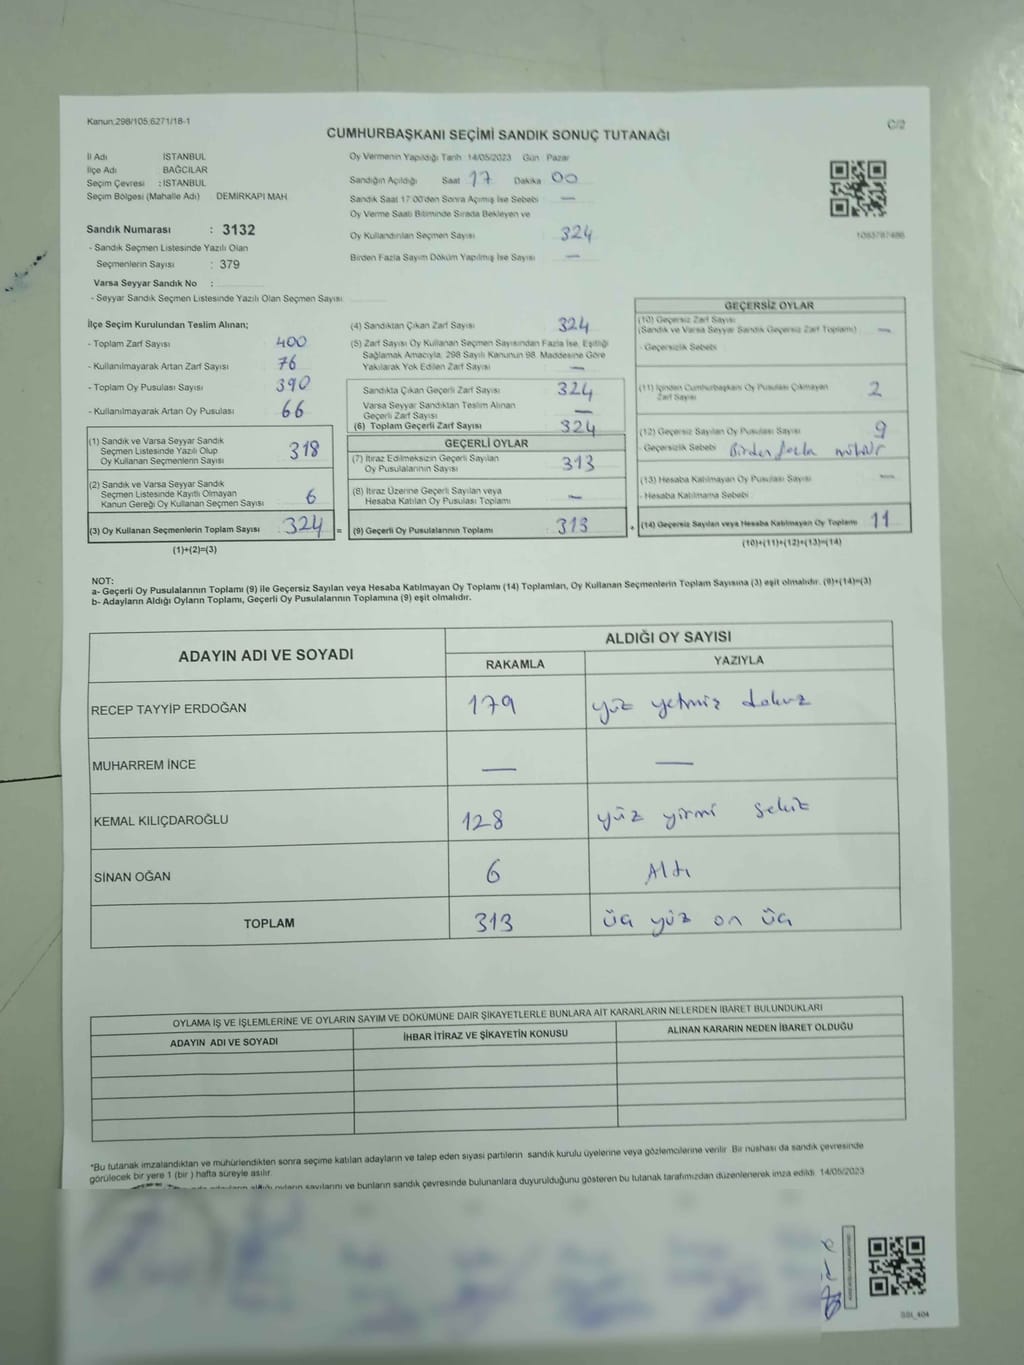 Kanun:298/105;6271/18-1
C/2
CUMHURBAŞKANI SEÇİMİ SANDIK SONUÇ TUTANAĞI
İl Adı İSTANBUL
İlçe Adı BAĞCILAR
Seçim Çevresi : İSTANBUL
Seçim Bölgesi (Mahalle Adı) DEMİRKAPI MAH
Sandık Numarası : 3132
- Sandık Seçmen Listesinde Yazılı Olan
Seçmenlerin Sayısı : 379
Varsa Seyyar Sandık No :
- Seyyar Sandık Seçmen Listesinde Yazılı Olan Seçmen Sayısı
Oy Vermenin Yapıldığı Tarih 14/05/2023 Gün Pazar
Sandığın Açıldığı Saat 17 Dakika 00
Sandık Saat 17:00'den Sonra Açılmış İse Sebebi —
Oy Verme Saati Bitiminde Sırada Bekleyen ve
Oy Kullandırılan Seçmen Sayısı 324
Birden Fazla Sayım Döküm Yapılmış İse Sayısı —
İlçe Seçim Kurulundan Teslim Alınan;
- Toplam Zarf Sayısı 400
- Kullanılmayarak Artan Zarf Sayısı 76
- Toplam Oy Pusulası Sayısı 390
- Kullanılmayarak Artan Oy Pusulası 66
(1) Sandık ve Varsa Seyyar Sandık
Seçmen Listesinde Yazılı Olup
Oy Kullanan Seçmenlerin Sayısı 318
(2) Sandık ve Varsa Seyyar Sandık
Seçmen Listesinde Kayıtlı Olmayan
Kanun Gereği Oy Kullanan Seçmen Sayısı 6
(3) Oy Kullanan Seçmenlerin Toplam Sayısı 324 =
(1)+(2)=(3)
(4) Sandıktan Çıkan Zarf Sayısı 324
(5) Zarf Sayısı Oy Kullanan Seçmen Sayısından Fazla İse, Eşitliği
Sağlamak Amacıyla, 298 Sayılı Kanunun 98. Maddesine Göre
Yakılarak Yok Edilen Zarf Sayısı —
Sandıkta Çıkan Geçerli Zarf Sayısı 324
Varsa Seyyar Sandıktan Teslim Alınan
Geçerli Zarf Sayısı —
(6) Toplam Geçerli Zarf Sayısı 324
GEÇERLİ OYLAR
(7) İtiraz Edilmeksizin Geçerli Sayılan
Oy Pusulalarının Sayısı 313
(8) İtiraz Üzerine Geçerli Sayılan veya
Hesaba Katılan Oy Pusulası Toplamı —
(9) Geçerli Oy Pusulalarının Toplamı 313 +
GEÇERSİZ OYLAR
(10) Geçersiz Zarf Sayısı
(Sandık ve Varsa Seyyar Sandık Geçersiz Zarf Toplamı) —
- Geçersizlik Sebebi
(11) İçinden Cumhurbaşkanı Oy Pusulası Çıkmayan
Zarf Sayısı 2
(12) Geçersiz Sayılan Oy Pusulası Sayısı 9
- Geçersizlik Sebebi Birden fazla mühür
(13) Hesaba Katılmayan Oy Pusulası Sayısı —
- Hesaba Katılmama Sebebi
(14) Geçersiz Sayılan veya Hesaba Katılmayan Oy Toplamı 11
(10)+(11)+(12)+(13)=(14)
NOT:
a- Geçerli Oy Pusulalarının Toplamı (9) ile Geçersiz Sayılan veya Hesaba Katılmayan Oy Toplamı (14) Toplamları, Oy Kullanan Seçmenlerin Toplam Sayısına (3) eşit olmalıdır. (9)+(14)=(3)
b- Adayların Aldığı Oyların Toplamı, Geçerli Oy Pusulalarının Toplamına (9) eşit olmalıdır.
ADAYIN ADI VE SOYADI ALDIĞI OY SAYISI
RAKAMLA YAZIYLA
RECEP TAYYİP ERDOĞAN 179 yüz yetmiş dokuz
MUHARREM İNCE — —
KEMAL KILIÇDAROĞLU 128 yüz yirmi sekiz
SİNAN OĞAN 6 Altı
TOPLAM 313 üç yüz on üç
OYLAMA İŞ VE İŞLEMLERİNE VE OYLARIN SAYIM VE DÖKÜMÜNE DAİR ŞİKAYETLERLE BUNLARA AİT KARARLARIN NELERDEN İBARET BULUNDUKLARI
ADAYIN ADI VE SOYADI İHBAR İTİRAZ VE ŞİKAYETİN KONUSU ALINAN KARARIN NEDEN İBARET OLDUĞU
*Bu tutanak imzalandıktan ve mühürlendikten sonra seçime katılan adayların ve talep eden siyasi partilerin sandık kurulu üyelerine veya gözlemcilerine verilir. Bir nüshası da sandık çevresinde
görülecek bir yere 1 (bir ) hafta süreyle asılır.
oyların sayılarını ve bunların sandık çevresinde bulunanlara duyurulduğunu gösteren bu tutanak tarafımızdan düzenlenerek imza edildi. 14/05/2023